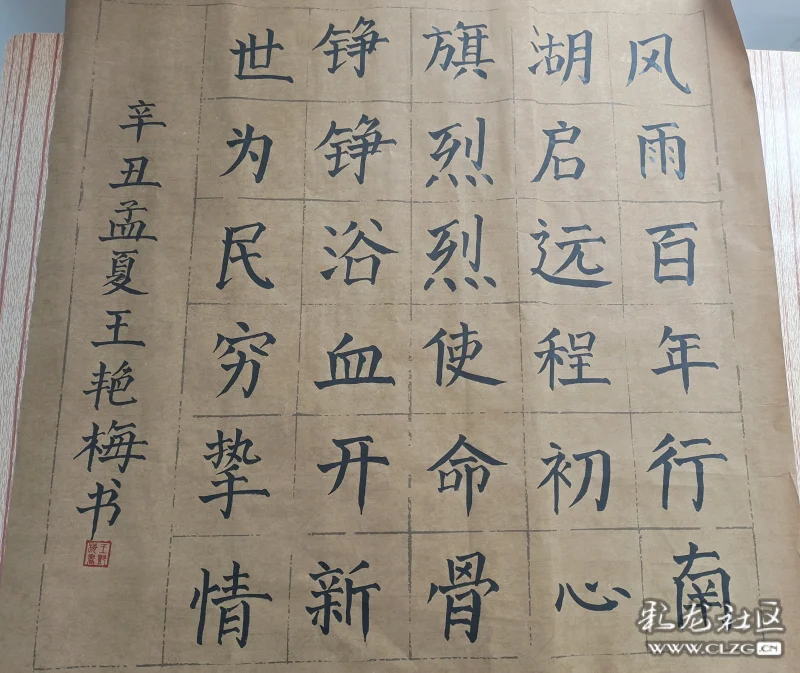 风雨百年行南
湖启远程初心
旗烈烈使命骨
铮铮浴血开新
世为民穷挚情
辛丑孟夏王艳梅书
乱龙社区
WWW.CLZG.CN